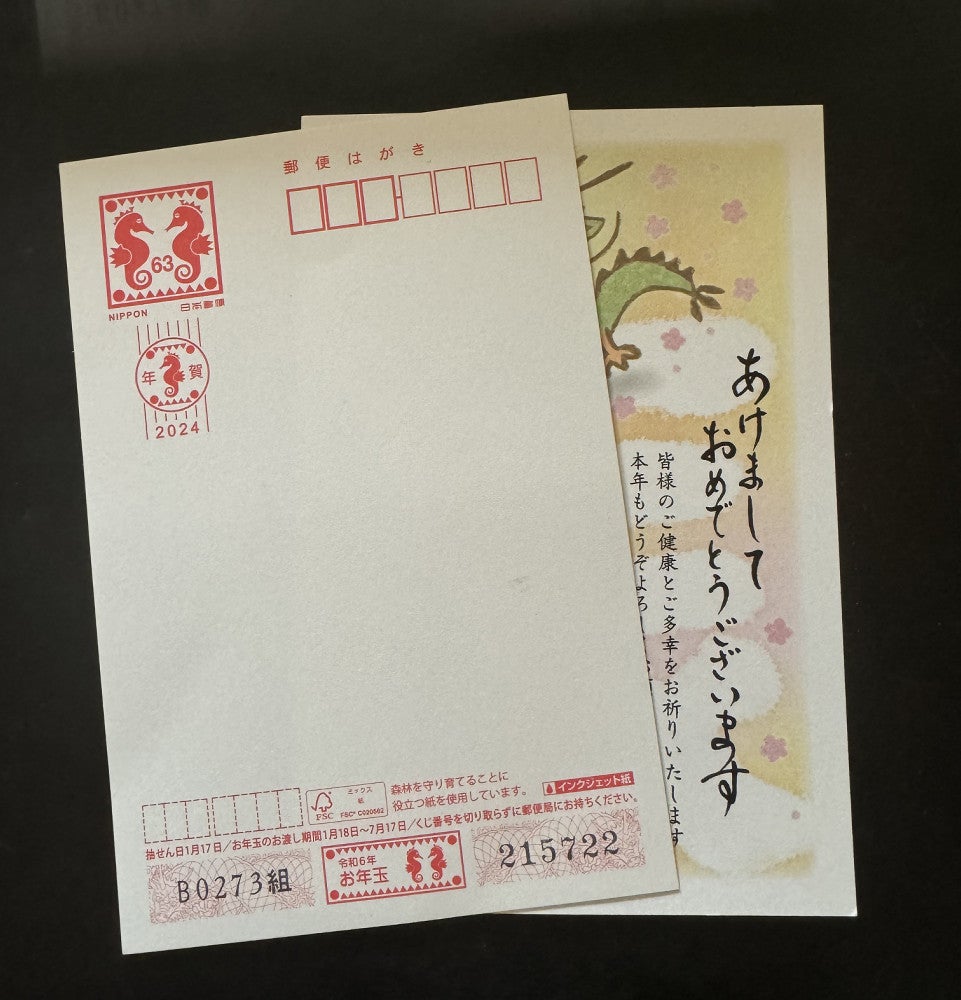 郵便はがき
63
NIPPON 日本郵便
年賀
2024
ミックス
紙
FSC
FSC® C020562
森林を守り育てることに
役立つ紙を使用しています。
インクジェット紙
抽せん日1月17日/お年玉のお渡し期間1月18日~7月17日/くじ番号を切り取らずに郵便局にお持ちください。
B0273組
令和6年
お年玉
215722
あけまして
おめでとうございます
皆様のご健康とご多幸をお祈りいたします
本年もどうぞよろ